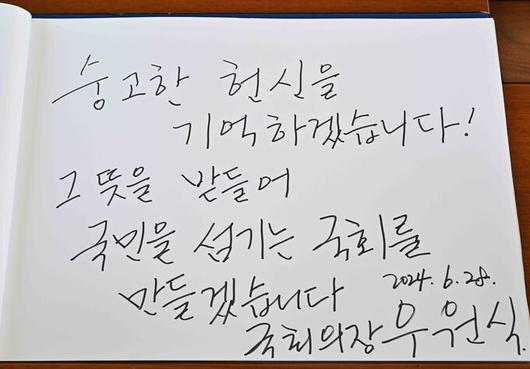 숭고한 헌신을
기억하겠습니다!
그 뜻을 받들어
국민을 섬기는 국회를
만들겠습니다
2024. 6. 28.
국회의장 우원식.